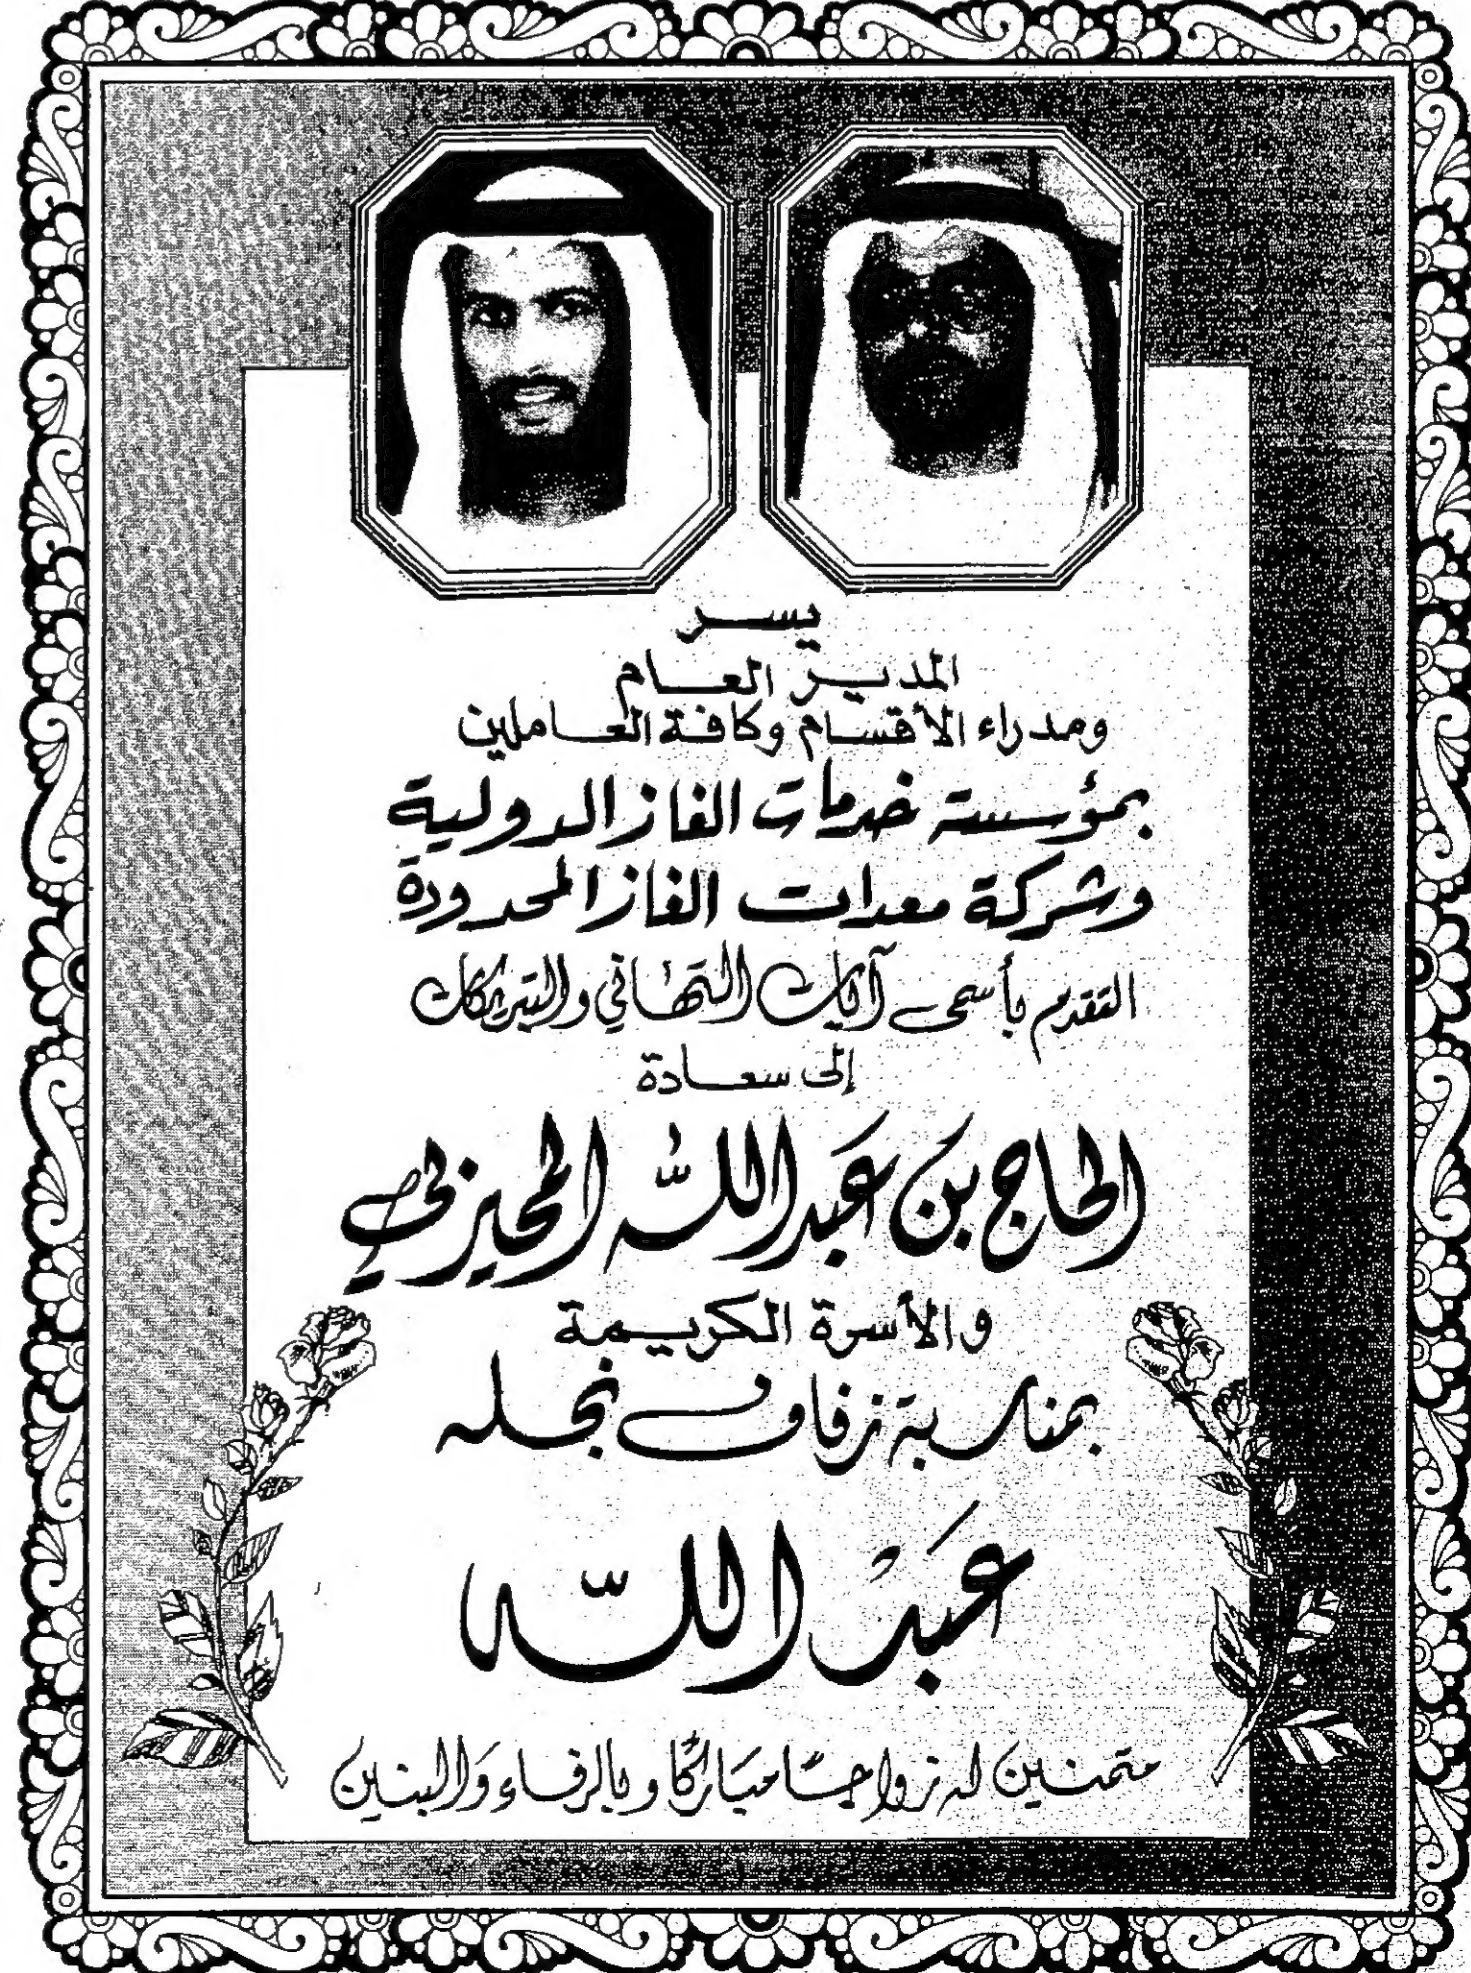 يسر
المدير العام
ومدراء الأقسام وكافة العاملين
بمؤسسة خدمات الغاز الدولية
وشركة معدات الغاز المحدودة
التقدم بأسمى آيات التهاني والتبريكات
إلى سعادة
الحاج بن عبد الله المحيربي
والأسرة الكريمة
بمناسبة زفاف نجله
عبد الله
متمنين له زواجًا مباركًا وبالرفاء والبنين